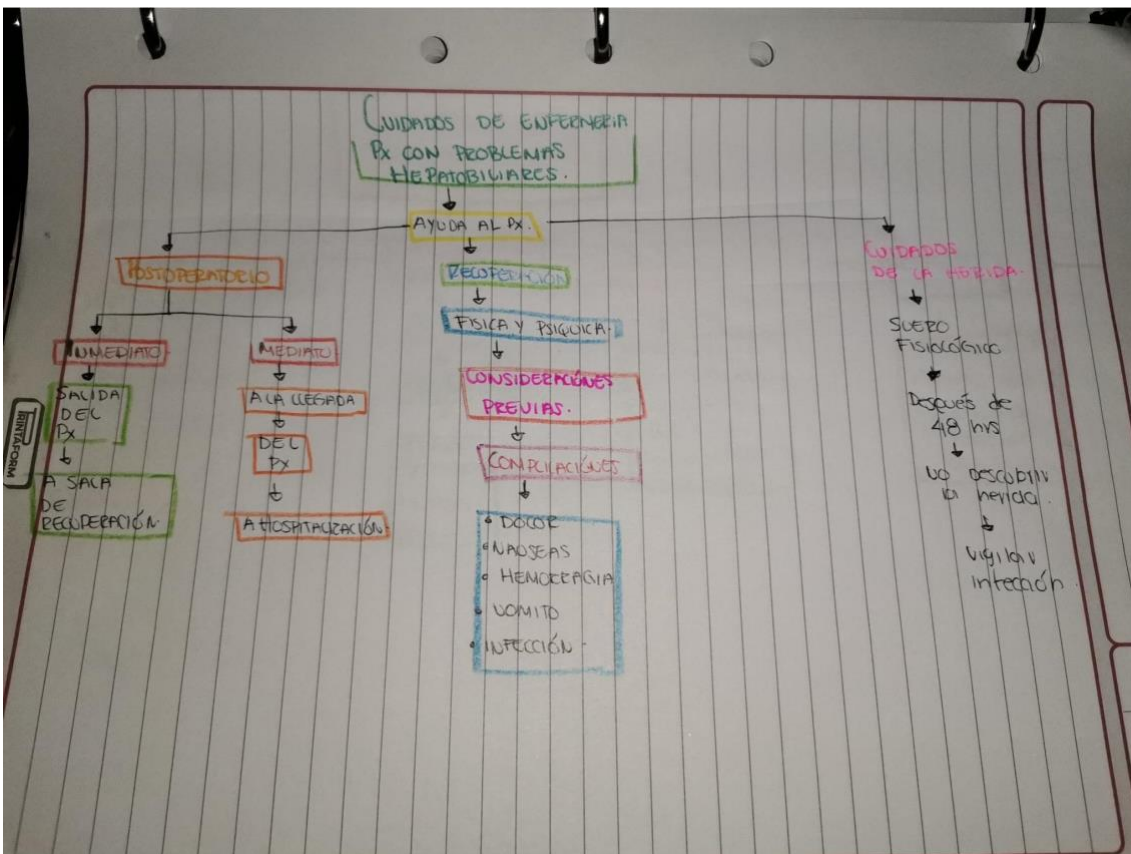 CUIDADOS DE ENFERMERIA
Px CON PROBLEMAS
HEPATOBILIARES.
AYUDA AL Px.
POSTOPERATORIO
INMEDIATO.
SALIDA
DEL
Px
A SALA
DE
RECUPERACIÓN.
MEDIATO
A LA LLEGADA
DEL
Px
A HOSPITALIZACIÓN.
RECUPERACIÓN
FISICA Y PSIQUICA.
CONSIDERACIÓNES
PREVIAS.
COMPLICACIÓNES
DOLOR
NAUSEAS
HEMORRAGIA
VOMITO
INFECCIÓN.
CUIDADOS
DE LA HERIDA.
SUERO
FISIOLÓGICO
Después de
48 hrs
NO DESCUBRIR
la herida.
vigilar
infección
TRINTAFORM